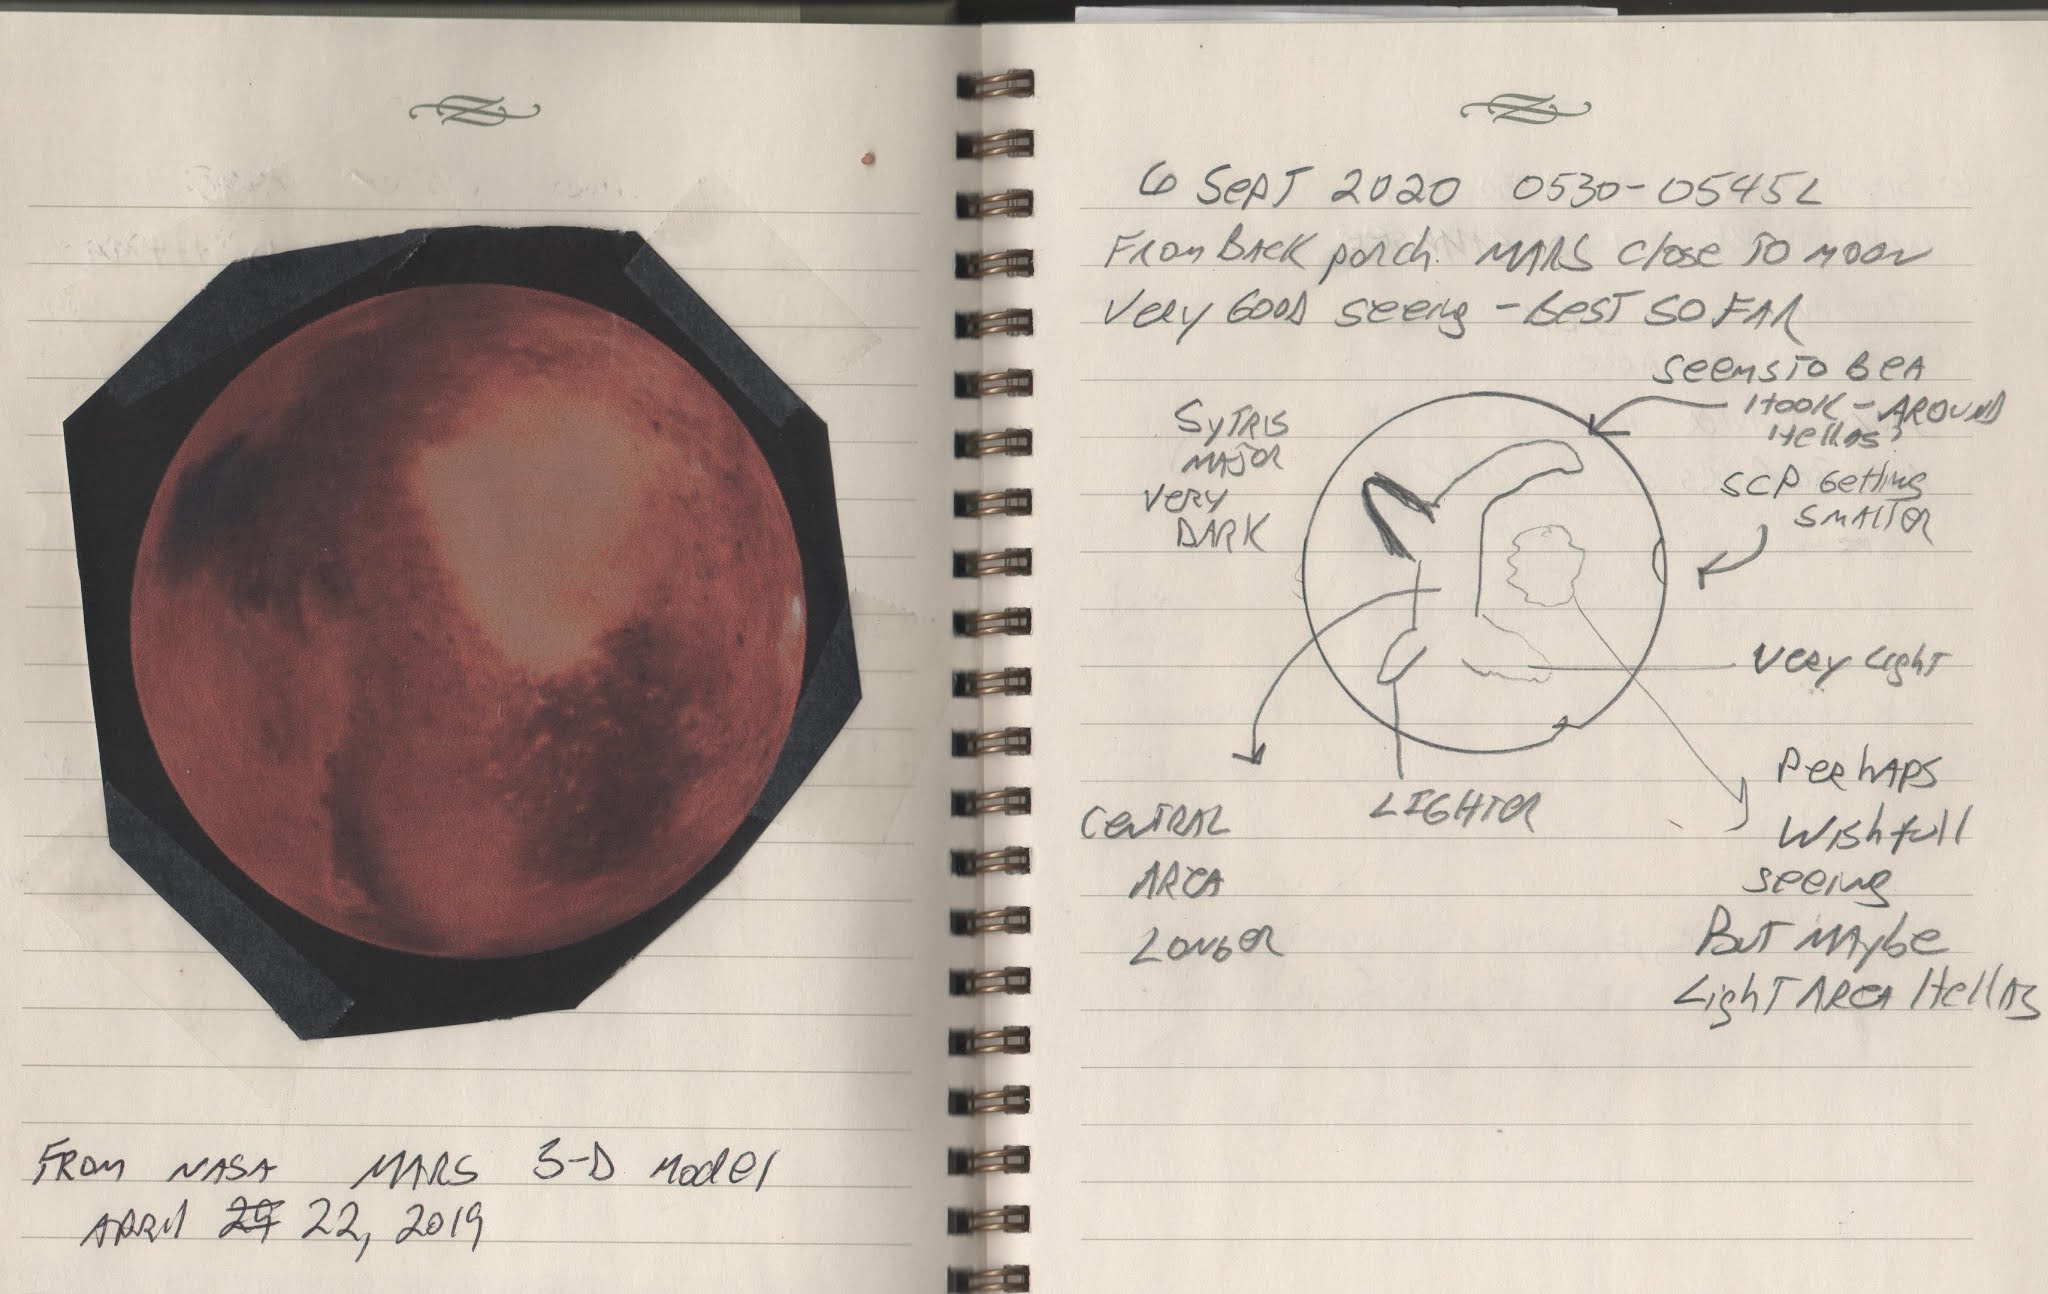 FROM NASA MARS 3-D Model
APRIL 29 22, 2019
6 SEPT 2020 0530-0545L
FROM BACK porch. MARS Close TO MOON
Very GOOD seeing - BEST SO FAR
Seems TO Be A
Hook - AROUND
Hellas?
SYTRIS
MAJOR
Very
DARK
SCP Getting
SMALLER
Very Light
PerhAPS
Wishfull
seeing
BUT MAybe
Light AREA HellAs
LIGHTER
CENTRAL
AREA
LONGER